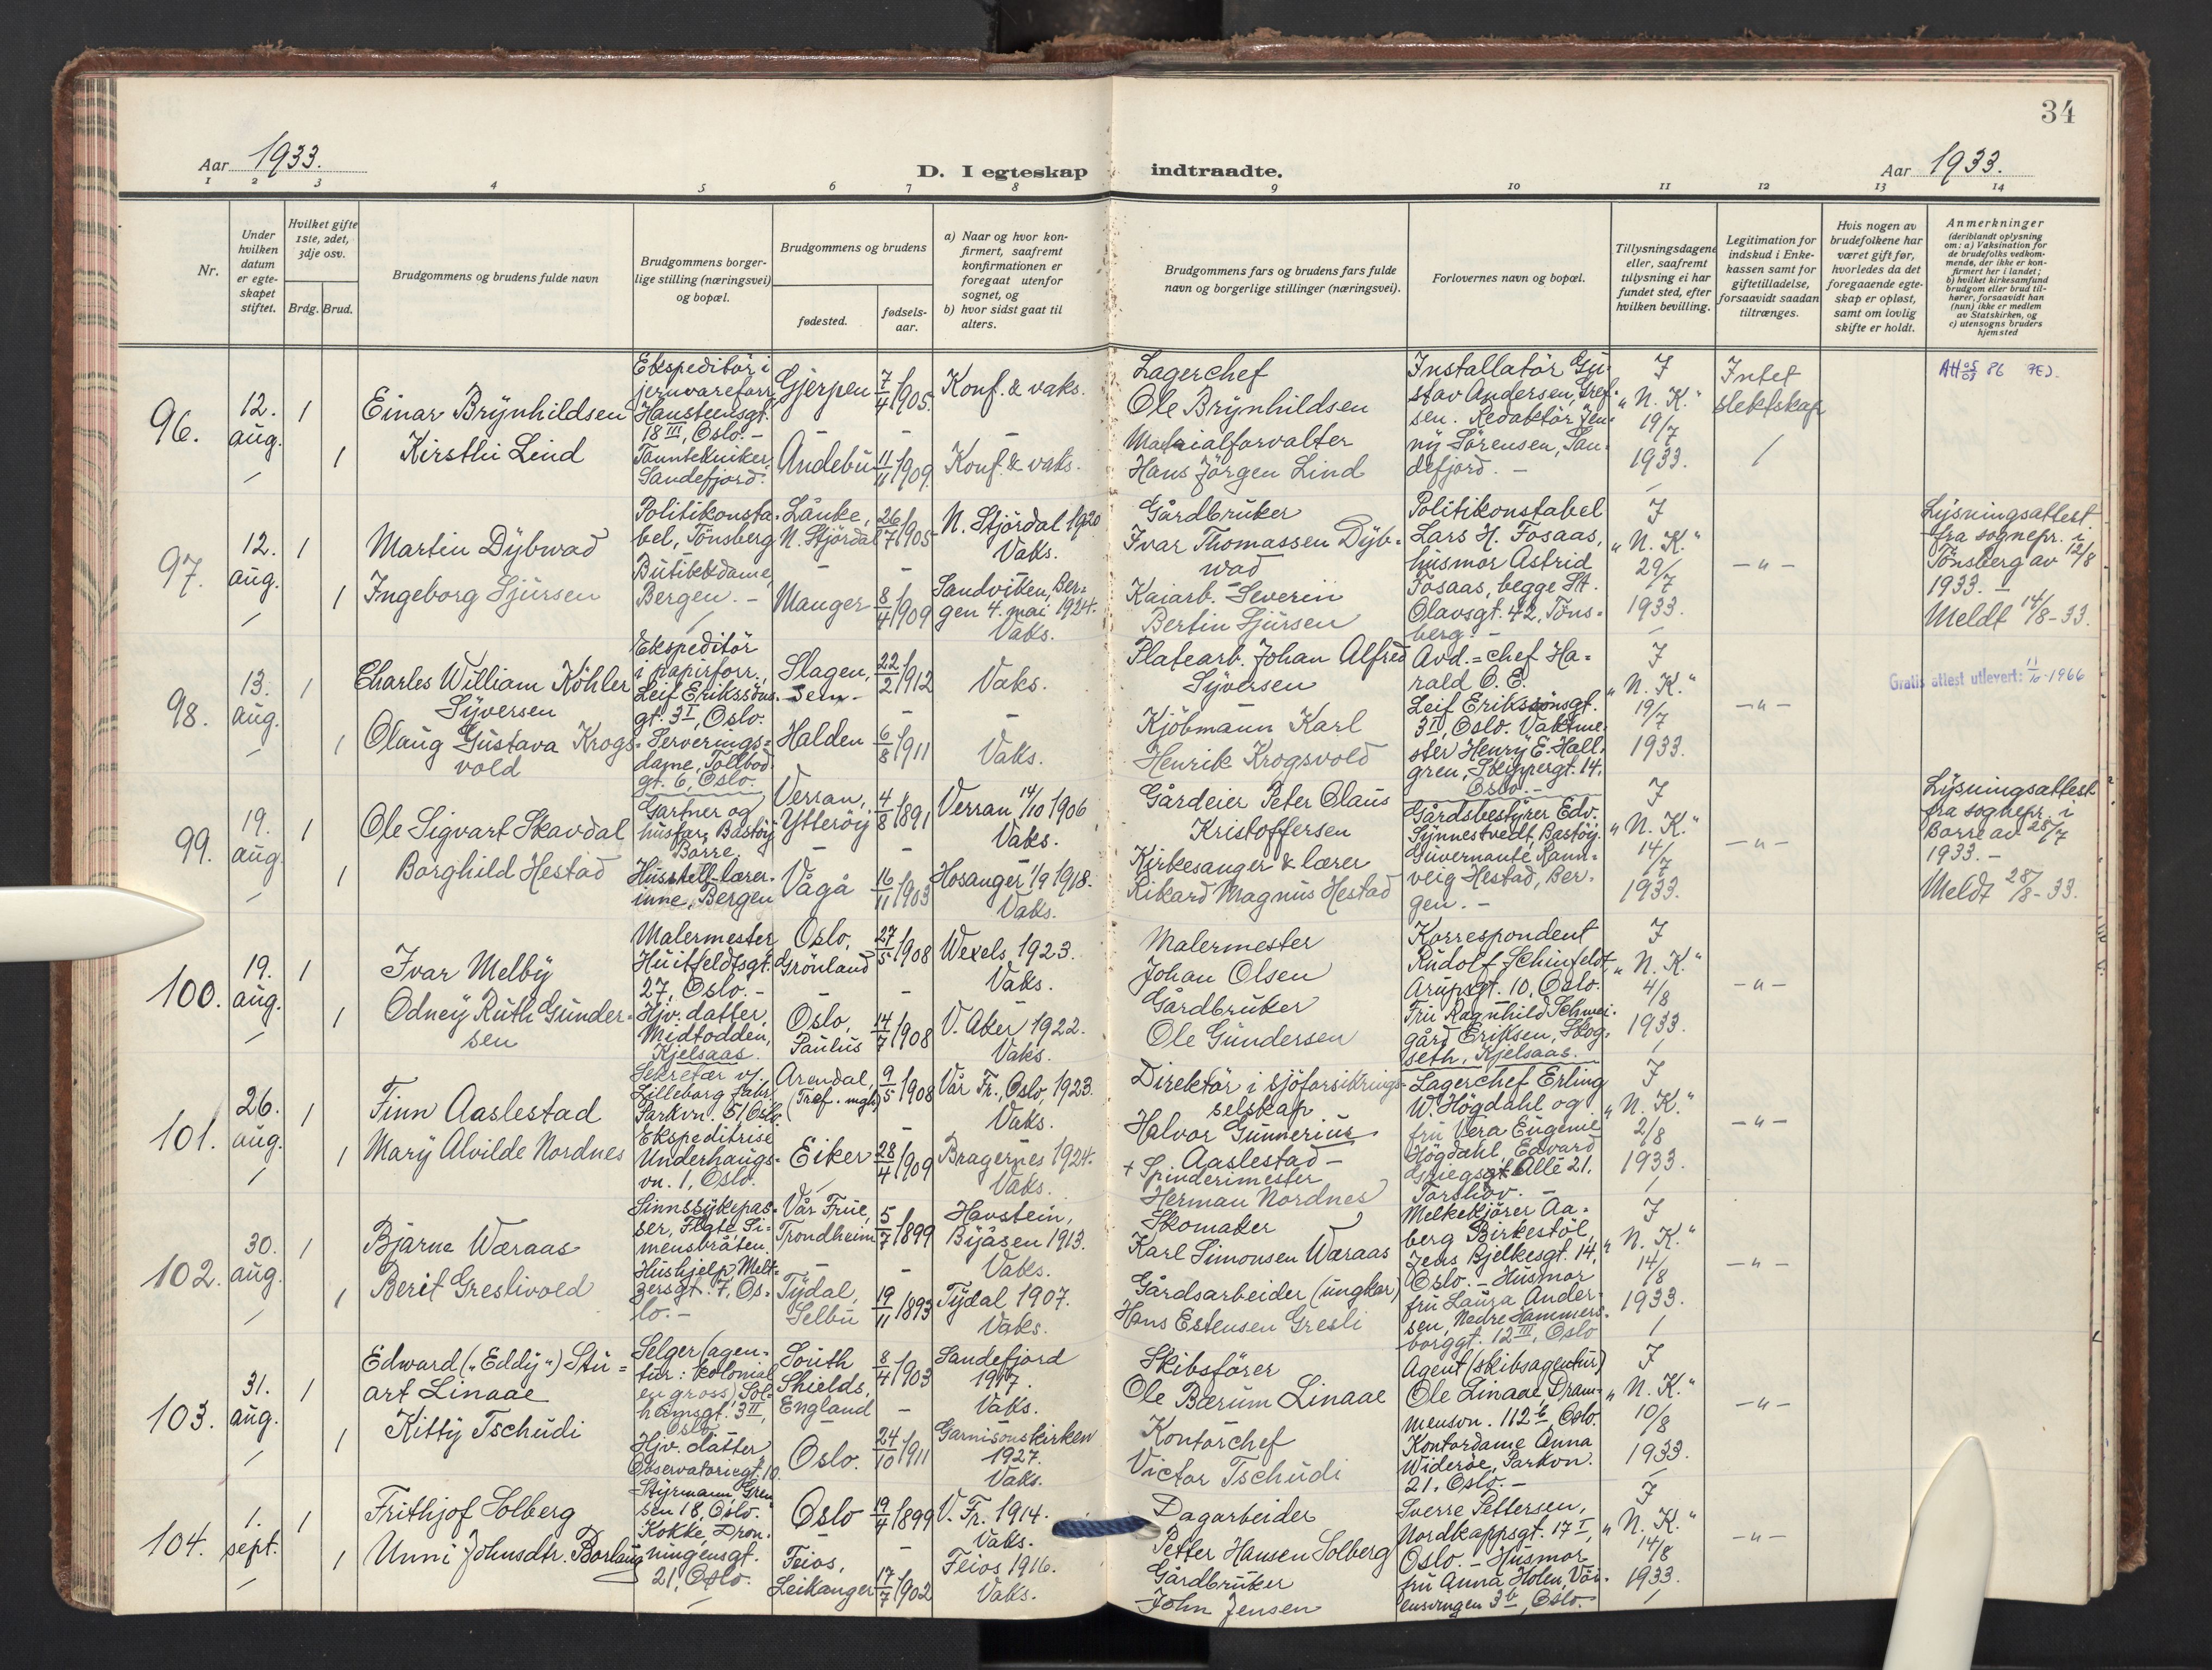 34
Aar 1933.
D. I egteskap indtraadte.
Aar 1933.
1 2 3 4 5 6 7 8 9 10 11 12 13 14
Nr.
Under
hvilken
datum
er egte-
skapet
stiftet.
Hvilket gifte
1ste, 2det,
3dje osv.
Brdg. Brud.
Brudgommens og brudens fulde navn
Brudgommens borger-
lige stilling (næringsvei)
og bopæl.
Brudgommens og brudens
fødested.
fødsels-
aar.
a) Naar og hvor kon-
firmert, saafremt
konfirmationen er
foregaat utenfor
sognet, og
b) hvor sidst gaat til
alters.
Brudgommens fars og brudens fars fulde
navn og borgerlige stillinger (næringsvei).
Forlovernes navn og bopæl.
Tillysningsdagene
eller, saafremt
tillysning ei har
fundet sted, efter
hvilken bevilling.
Legitimation for
indskud i Enke-
kassen samt for
giftetilladelse,
forsaavidt saadan
tiltrænges.
Hvis nogen av
brudefolkene har
været gift før,
hvorledes da det
foregaaende egte-
skap er opløst,
samt om lovlig
skifte er holdt.
Anmerkninger
(deriblandt oplysning
om: a) Vaksination for
de brudefolks vedkom-
mende, der ikke er kon-
firmert her i landet;
b) hvilket kirkesamfund
brudgom eller brud til-
hører, forsaavidt han
(hun) ikke er medlem
av Statskirken, og
c) utensogns bruders
hjemsted
96.
12.
aug.
1
1
Einar Brynhildsen
Kirsthi Lind
Ekspeditör i
jernvareforr.
Hansteensgt.
18 III, Oslo. -
Tanntekniker,
Sandefjord.
Gjerpen
7/4 1905.
Konf. & vaks.
Andebu
11/11 1909.
Konf. & vaks.
Lagerchef
Ole Brynhildsen
Materialforvalter
Hans Jörgen Lind
Installatör Gu-
stav Andersen, Gref-
sen. Redaktör Jen-
ny Sörensen, San-
defjord. -
I
"N. K."
19/7
1933.
Intet
slektskap
97.
12.
aug.
1
1
Martin Dybwad
Ingeborg Sjursen
Politikonsta-
bel, Tönsberg
Butikkdame,
Bergen. -
Lånke,
N. Stjördal
26/7 1905
N. Stjördal 1920
Vaks.
Manger
8/4 1909
Sandviken, Ber-
gen 4. mai 1924.
Vaks.
Gårdbruker
Ivar Thomassen Dyb-
wad
Kaiarb. Severin
Bertin Sjursen
Politikonstabel
Lars H. Fosaas,
husmor Astrid
Fosaas, begge St.
Olavsgt. 42, Töns-
berg. -
I
"N. K."
29/7
1933.
- " -
Lysningsattest
fra sognepr. i
Tönsberg av 12/8
1933. -
Meldt 14/8-33.
98.
13.
aug.
1
1
Charles William Köhler
Syversen
Olaug Gustava Krogs-
vold
Ekspeditör
i papirforr.,
Leif Erikssöns
gt. 3 I, Oslo.
Serverings-
dame, Tollbod
gt. 6, Oslo.
Slagen,
Sem.
22/2 1912
Vaks.
Halden
6/8 1911
Vaks.
Platearb. Johan Alfred
Syversen
Kjöbmann Karl
Henrik Krogsvold
Avd.-chef Ha-
rald C. E.
Leif Erikssönsgt.
3 II, Oslo. Vaktme-
ster Henry E. Hall-
gren, Skippergt. 14,
Oslo. -
I
"N. K."
19/7
1933.
- " -
Gratis attest utlevert: 11/10-1966
99.
19.
aug.
1
1
Ole Sigvart Skavdal
Borghild Hestad
Gartner og
husfar, Bastöy
Borre.
Husstell-lærer-
inne, Bergen
Verran,
Ytteröy
4/8 1891
Verran 14/10 1906
Vaks.
Vågå
16/11 1903
Hosanger 1/9 1918.
Vaks.
Gårdeier Peter Olaus
Kristoffersen
Kirkesanger & lærer
Rikard Magnus Hestad
Gårdsbestyrer Edv.
Synnestvedt, Bastöy.
Guvernante Rann-
veig Hestad, Ber-
gen. -
I
"N. K."
14/7
1933.
- " -
Lysningsattest
fra sognepr. i
Borre av 28/7
1933. -
Meldt 28/8-33.
100.
19.
aug.
1
1
Ivar Melby
Odney Ruth Gunder-
sen
Malermester
Huitfeldtsgt.
27, Oslo. -
Hjv. datter,
Midtodden,
Kjelsaas.
Oslo,
Grönland
27/5 1908
Wexels 1923.
Vaks.
Oslo,
Paulus
14/7 1908
V. Aker 1922.
Vaks.
Malermester
Johan Olsen
Gårdbruker
Ole Gundersen
Korrespondent
Rudolf Schinfeldt,
Arupsgt. 10, Oslo.
Fru Ragnhild Schwei-
gård Eriksen, Skog-
seth, Kjelsaas.
I
"N. K."
4/8
1933.
- " -
101.
26.
aug.
1
1
Finn Aaslestad
Mary Alvilde Nordnes
Sekretær v/
Lilleborg Fabr.
Parkvn. 51 Oslo
Ekspeditrise
Underhaugs-
vn. 1, Oslo.
Arendal,
(Tref. mgh)
9/5 1908
Vår Fr., Oslo, 1923.
Vaks.
Eiker
28/4 1909
Bragernes 1924.
Vaks.
Direktör i sjöforsikrings-
selskap
Halvor Gunnerius
Aaslestad -
+ Spinderimester
Herman Nordnes
Lagerchef Erling
W. Högdahl og
fru Vera Eugenie
Högdahl, Edvard
Griegsgt. Allé 21,
Torshov. -
I
"N. K."
2/8
1933.
- " -
102.
30.
aug.
1
1
Bjarne Wæraas
Berit Greslivold
Sinnssykepas-
ser, Flgte, Si-
mensbråten.
Hushjelp, Melt-
zersgt. 7, Os-
lo. -
Vår Frue,
Trondheim
5/7 1899
Havstein,
Byåsen 1913.
Vaks.
Tydal,
Selbu
19/11 1893
Tydal 1907.
Vaks.
Skomaker
Karl Simonsen Wæraas
Gårdsarbeider (ungkar)
Hans Estensen Gresli
Melkekjörer Aa-
berg Birkestöl,
Jens Bjelkesgt. 14,
Oslo. - Husmor
fru Laura Ander-
sen, Nedre Hammers-
borggt. 12 III, Oslo
I
"N. K."
14/8
1933.
- " -
103.
31.
aug.
1
1
Edward ("Eddy") Stu-
art Linaae
Kitty Tschudi
Selger (agen-
tur: kolonial
en gross), Sol-
heimsgt. 3 II,
Oslo
Hjv. datter
Observatoriegt. 10
South
Shields,
England
8/4 1903
Sandefjord
1917.
Vaks.
Oslo.
24/10 1911
Garnisonskirken
1927.
Vaks.
Skibsförer
Ole Bærum Linaae
Kontorchef
Victor Tschudi
Agent (skibsagentur)
Ole Linaae, Dram-
mensvn. 112 b, Oslo
Kontordame Anna
Wideröe, Parkvn.
21, Oslo. -
I
"N. K."
10/8
1933.
- " -
104.
1.
sept.
1
1
Frithjof Solberg
Unni Johnsdtr. Borlaug
Styrmann, Gren
sen 18, Oslo.
Kokke, Dron-
ningensgt.
21, Oslo.
Oslo
19/4 1899
V. Fr. 1914.
Vaks.
Feios,
Leikanger
17/7 1902
Feios 1916.
Vaks.
Dagarbeider
Petter Hansen Solberg
Gårdbruker
John Jensen
Sverre Pettersen,
Nordkappsgt. 17 I,
Oslo. - Husmor
fru Anna Holen, Vöi-
ensvingen 3 b, Oslo. -
I
"N. K."
14/8
1933.
- " -